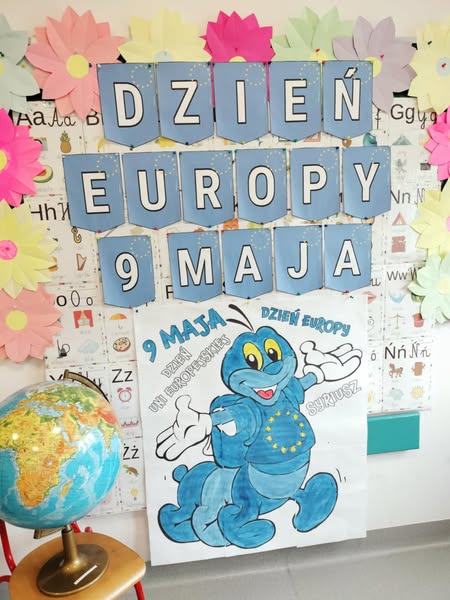 DZIEŃ
EUROPY
9 MAJA
9 MAJA
DZIEŃ EUROPY
DZIEŃ
UNI EUROPEJSKIEJ
SYRIUSZ
Aa
B
Gg
Hh
Oo
Ww
Zz
Żż
Nń